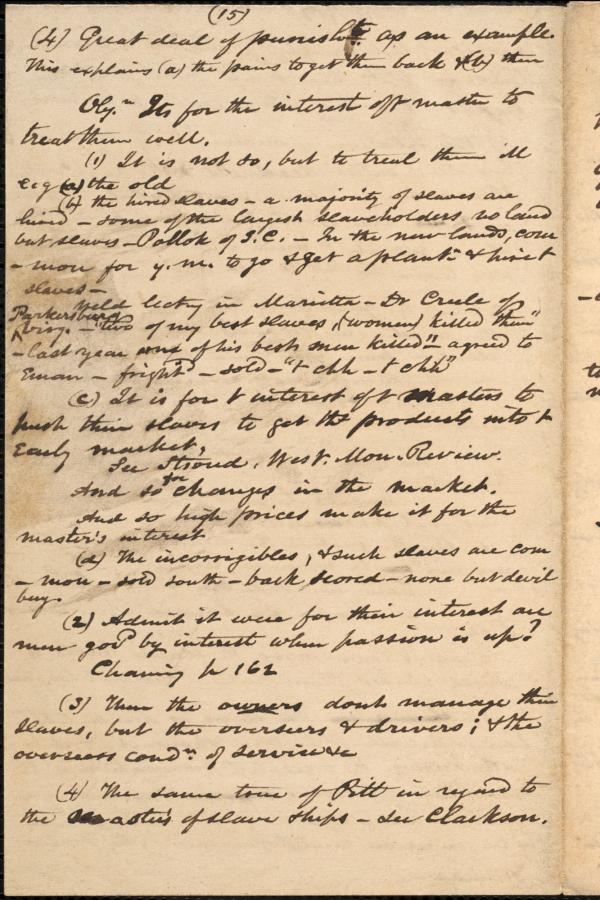 (15)
(4) Great deal of punishts as an example.
This explains (a) the pains to get them back & (b) then
Obj.n Its for the interest of t master to
treat them well.
(1) It is not so, but to treat them ill
e.g (a) the old
(b) the hired slaves – a majority of slaves are
hired – some of the largest slaveholders no land
but slaves – Pollok of S.C. – In the new lands, com
– mon for y. m. to go & get a plantn & hire t
slaves –
Weld lectg in Marietta – Dr Creele of
Parkersburg
Virg. – "two of my best slaves, (women) killed them"
– last year one of his best men killed" – agreed to
Eman – frightd – sold – "t chh – t chh"
(c) It is for t interest of t masters to
push their slaves to get the products into t
Early market,
See Stroud, West. Mon. Review.
And so for changes in the market.
And so high prices make it for the
master's interest
(d) The incorrigibles, & such slaves are com
– mon – sold south – back scored – none but devil
buy.
(2) Admit it were for their interest are
men govd by interest when passion is up?
Chaning p 162
(3) Then the owners dont manage their
slaves, but the overseers & drivers; & the
overseers condn of service &c
(4) The same tone of Pitt in regard to
the masters of slave ships – see Clarkson.